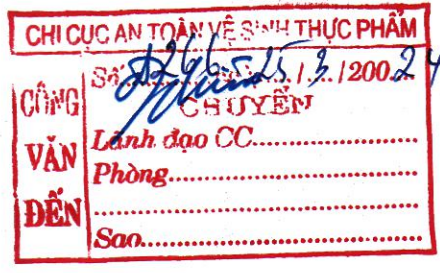 CHI CỤC AN TOÀN VỆ SINH THỰC PHẨM
CÔNG VĂN ĐẾN
Số 25/3/200.24
CHUYỂN
Lãnh đạo CC
Phòng
Sao